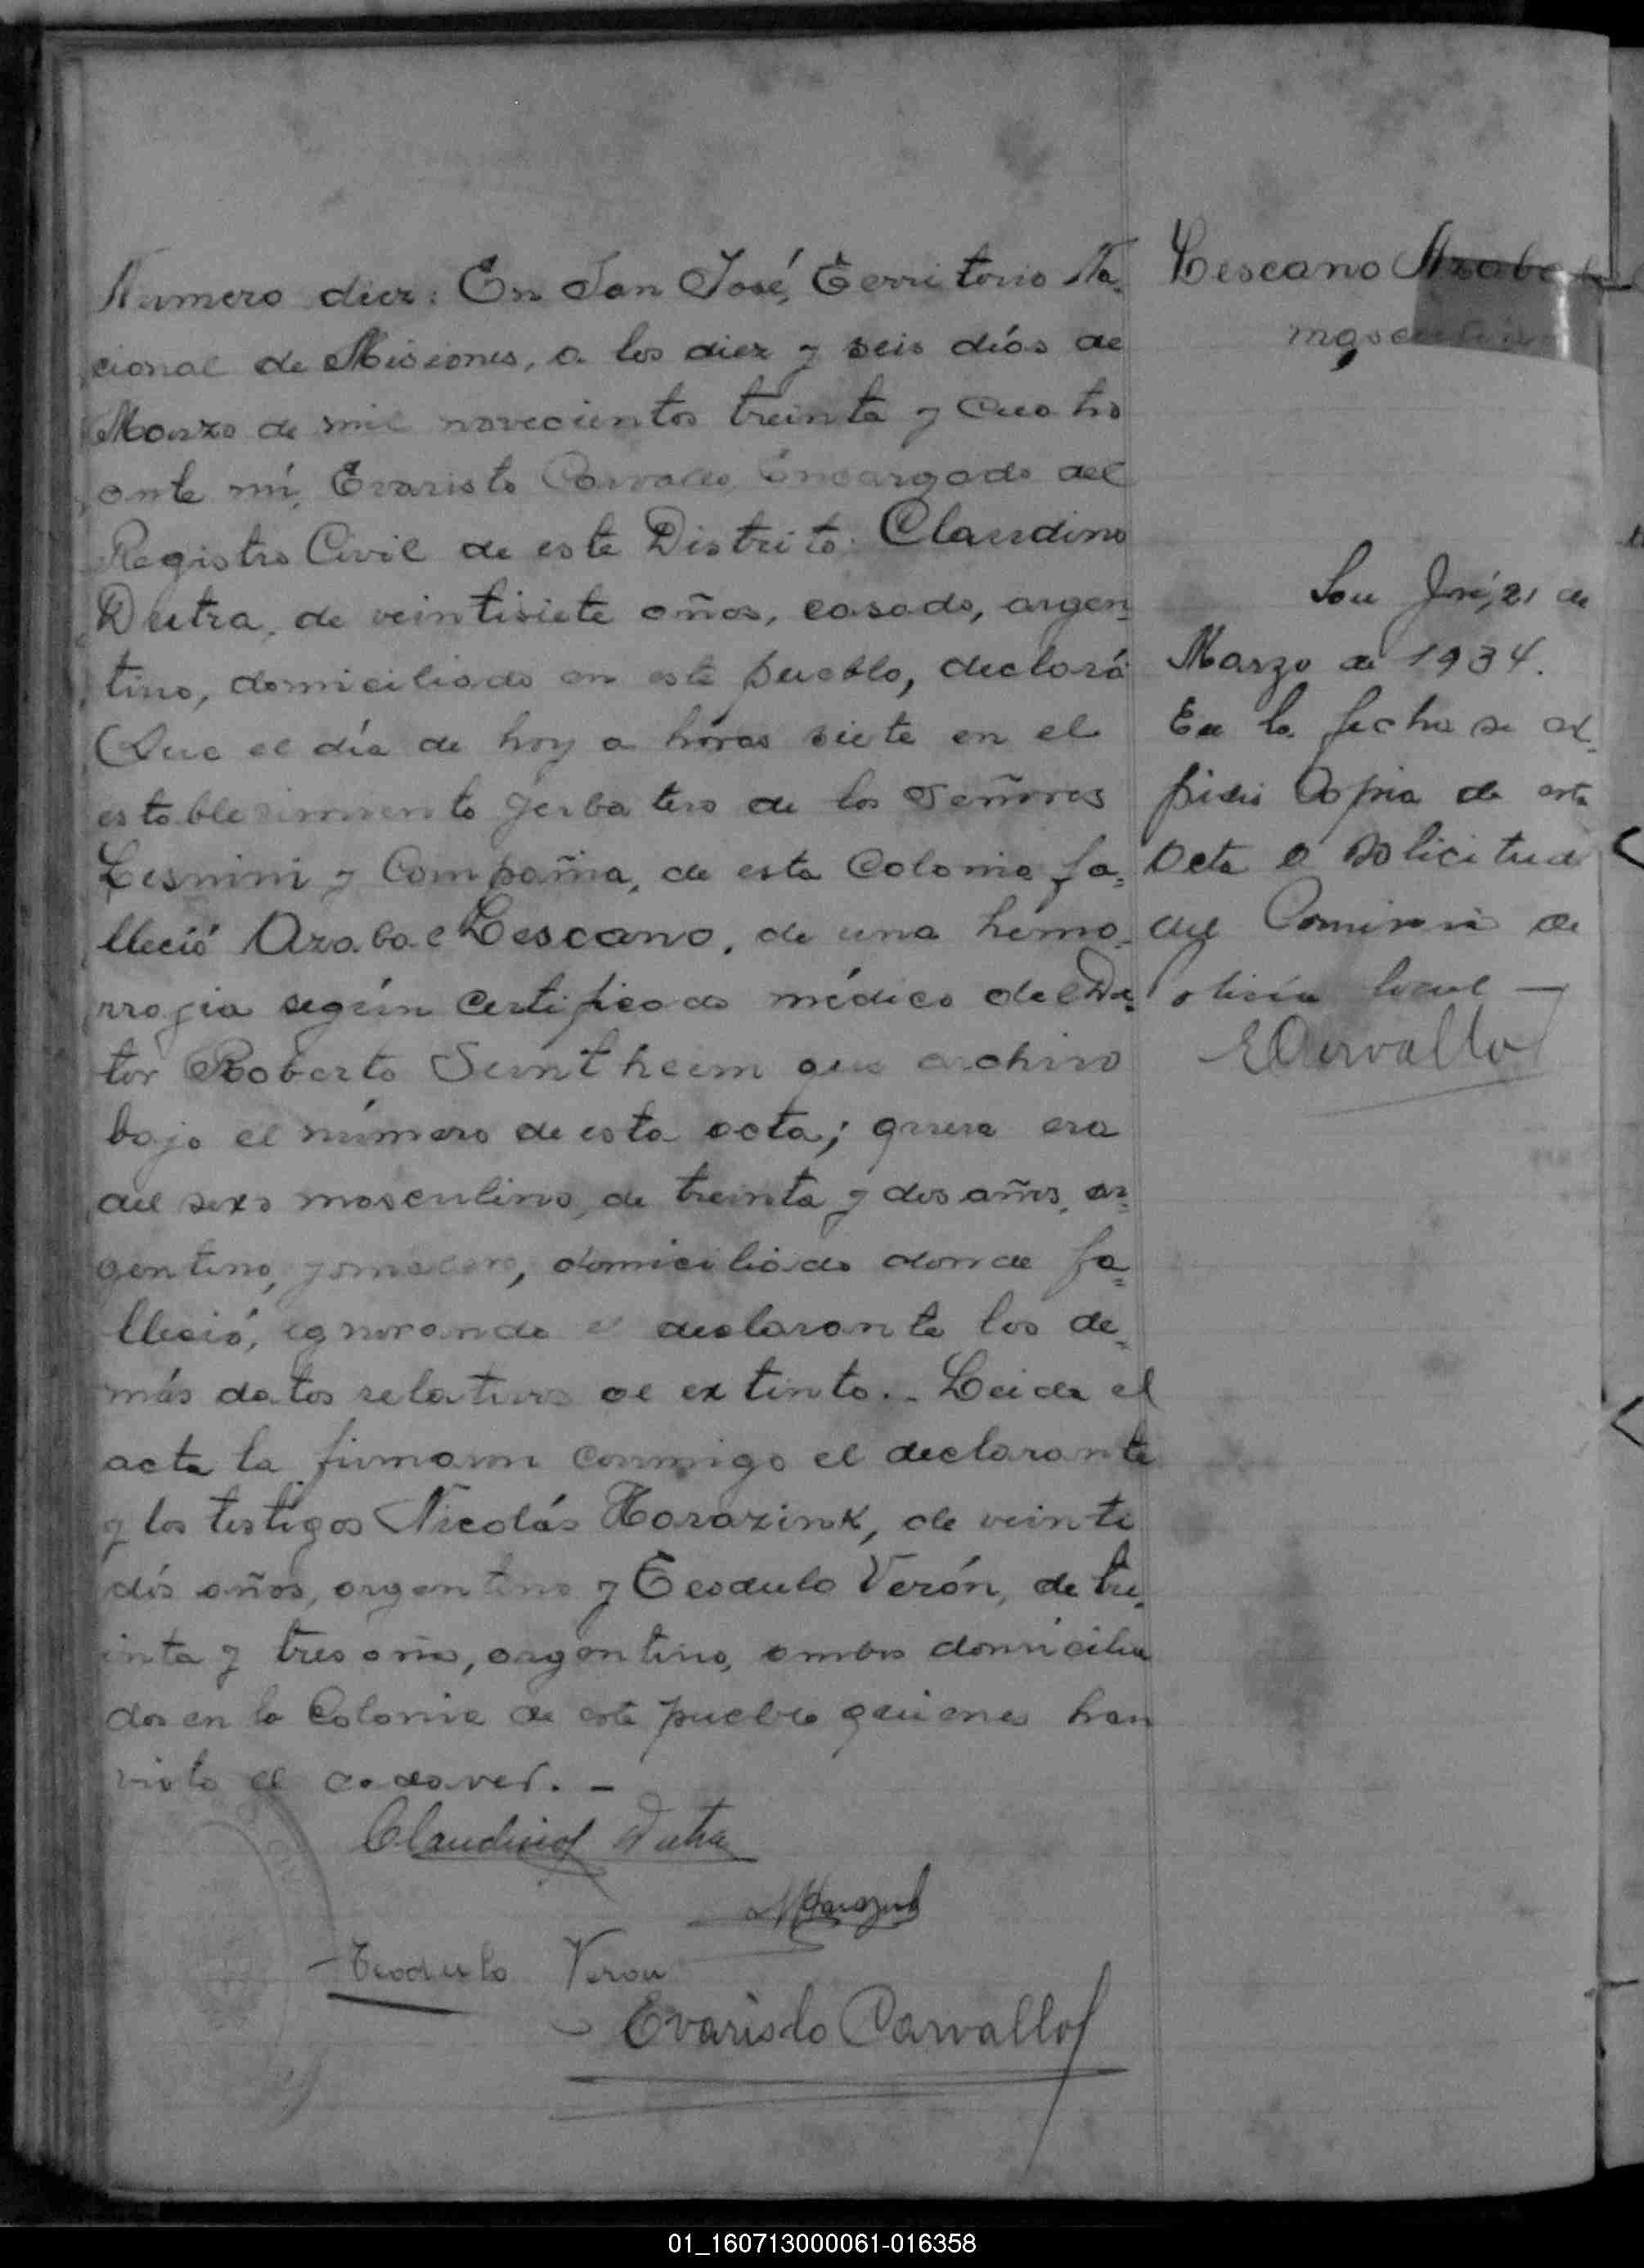 Numero diez: En San José, Territorio Na-
cional de Misiones, a los diez y seis días de
Marzo de mil novecientos treinta y cuatro
ante mí, Evaristo Carvallo Encargado del
Registro Civil de este Distrito: Claudino
Dutra, de veintisiete años, casado, argen=
tino, domiciliado en este pueblo, declaró:
Que el día de hoy a horas siete en el
establecimiento yerbatero de los Señores
Lesnini y Compañia, de esta Colonia fa=
lleció Arabal Lescano, de una hemo-
rragia según certificado médico del Do=
tor Roberto Suntheim que archivo
bajo el número de esta acta; quien era
del sexo masculino, de treinta y dos años, ar=
gentino, jornalero, domiciliado donde fa=
lleció, ignorando el declarante los de=
más datos relativos al extinto.- Leida el
acta la firmaron conmigo el declarante
y los testigos Nicolás Horazink, de veinte
dós años, argentino y Teodulo Verón, de tre-
inta y tres años, argentino, ambos domicilia
dos en la Colonia de este pueblo quienes han
visto el cadaver.-
Claudino Dutra
Teodulo Veron
Evaristo Carvallo
Lescano Arabal
masculino
San José, 21 de
Marzo de 1934.
En la fecha se ex-
pidió Copia de esta
Acta a solicitud
del Comisario de
Policía local —
ECarvallo
01_160713000061-016358